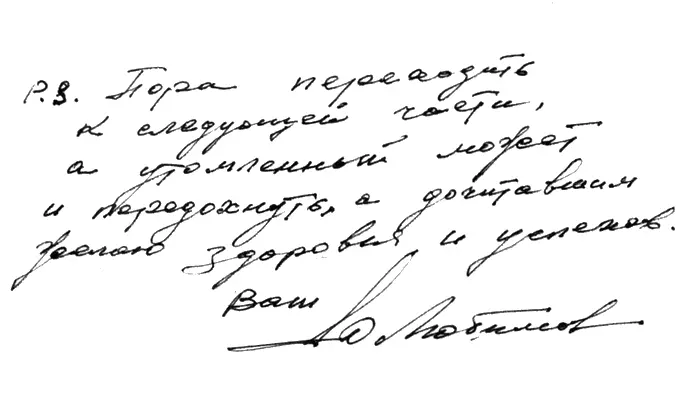 P.S. Пора переходить
к следующей части,
а утомленный может
и передохнуть, а дочитавшим
желаю здоровья и успехов.
Ваш
Ю Любимов